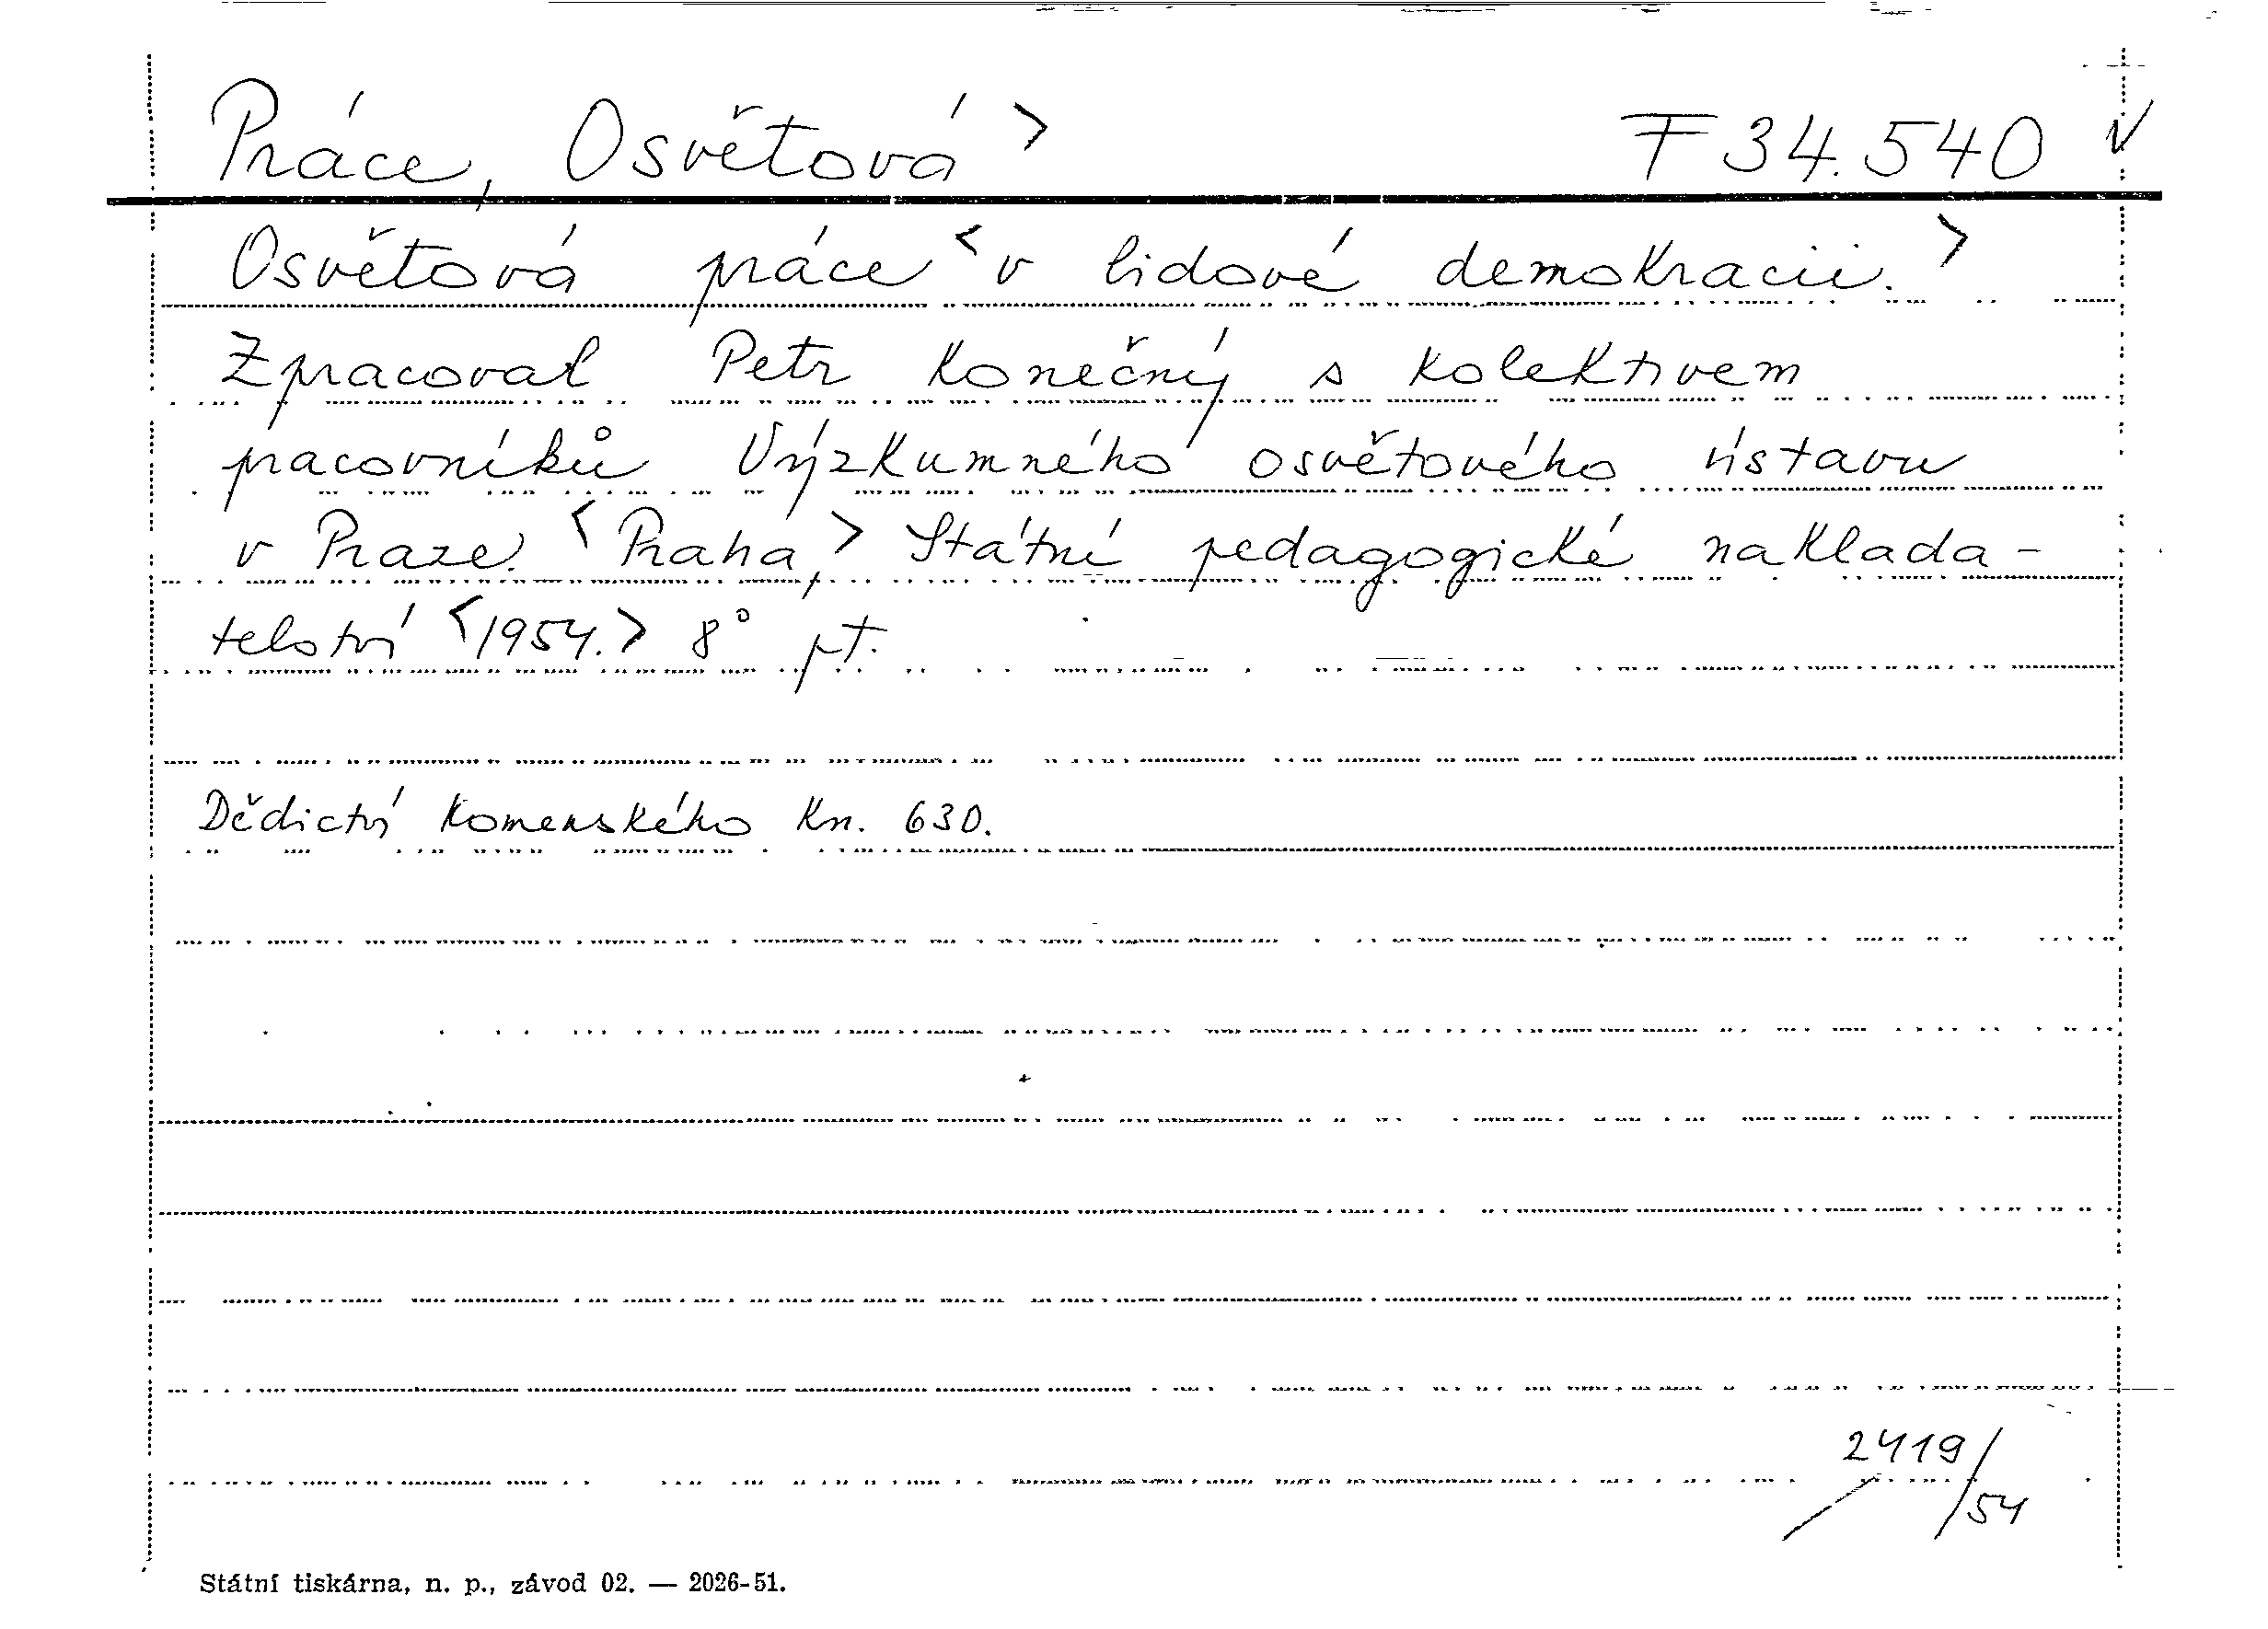 Práce, Osvětová > F 34.540 √
Osvětová práce < v lidové demokracii. >
Zpracoval Petr Konečný s kolektivem
pracovníků Výzkumného osvětového ústavu
v Praze. < Praha, > Státní pedagogické naklada-
telství < 1954. > 8° pt.
Dědictví Komenského Kn. 630.
2419/
/54
Státní tiskárna, n. p., závod 02. — 2026-51.